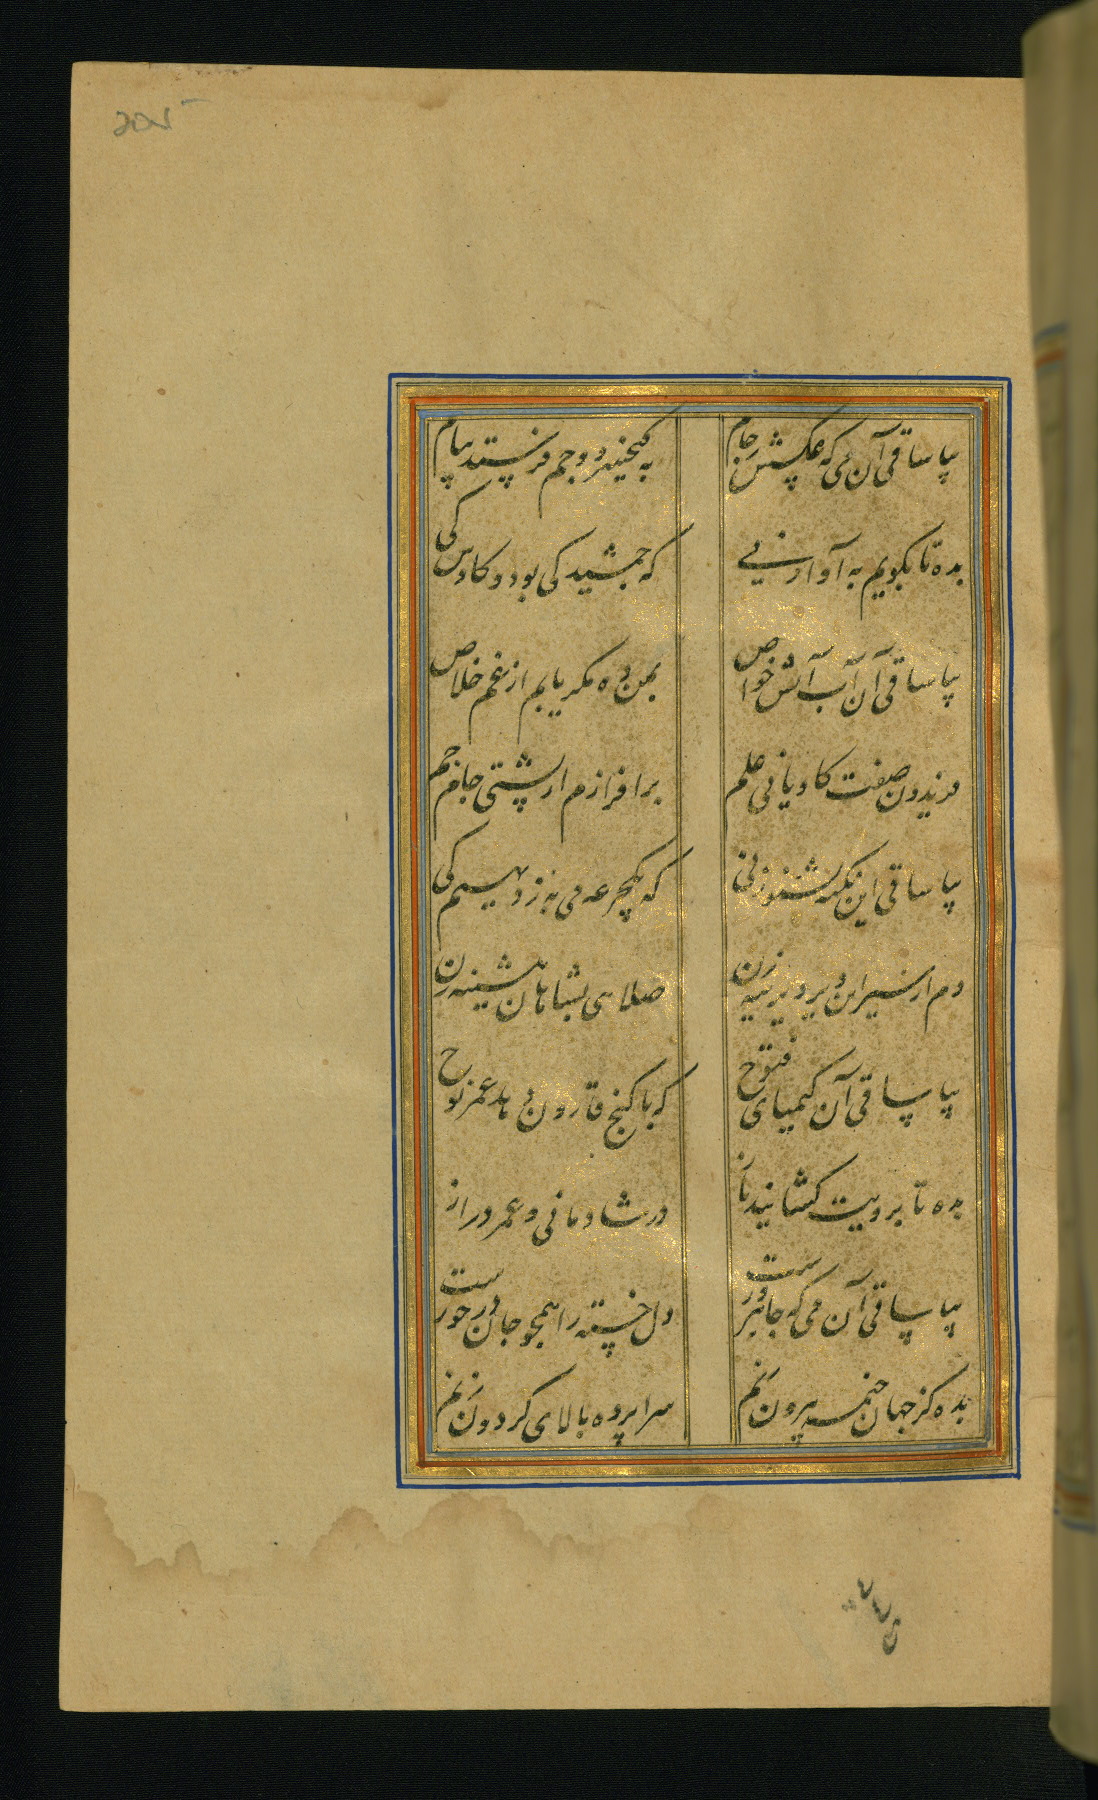 بیا ساقی آن می که عکسش ز جام
به کیخسرو و جم فرستد پیام
بده تا بگویم به آواز نی
که جمشید کی بود و کاوس کی
بیا ساقی آن آب آتش خواص
بمن ده مگر یابم از غم خلاص
فریدون صفت کاویانی علم
برافرازم از پشتی جام جم
بیا ساقی این نکته بشنو ز نی
که یکجرعه می به ز دیهیم کی
دم از سیر این دیر دیرینه زن
صلای بشاهان پیشینه زن
بیا ساقی آن کیمیای فتوح
که با گنج قارون دهد عمر نوح
بده تا برویت گشایند باز
در شادمانی و عمر دراز
بیا ساقی آن می که جانپرورست
دل خسته را همچو جان در خورست
بده کز جهان خیمه بیرون زنم
سراپرده بالای گردون زنم